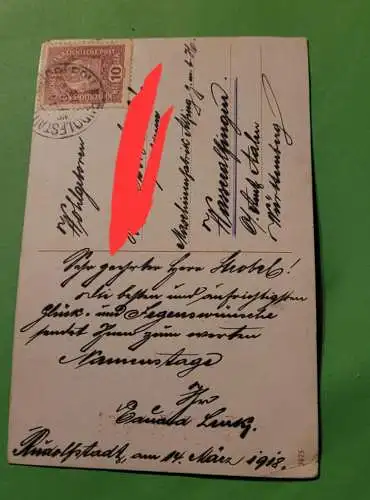 10
RUDOLFSTADT
Wohlgeboren
Maschinenfabrik Alfing G.m.b.H.
Wasseralfingen
Aalen
Württemberg
Sehr geehrter Herr Strobel!
die besten und aufrichtigsten
Glück- und Segenswünsche
sendet Ihnen zum werten
Namenstage
Ihr
Eduard
Rudolfstadt, am 14. März 1918.